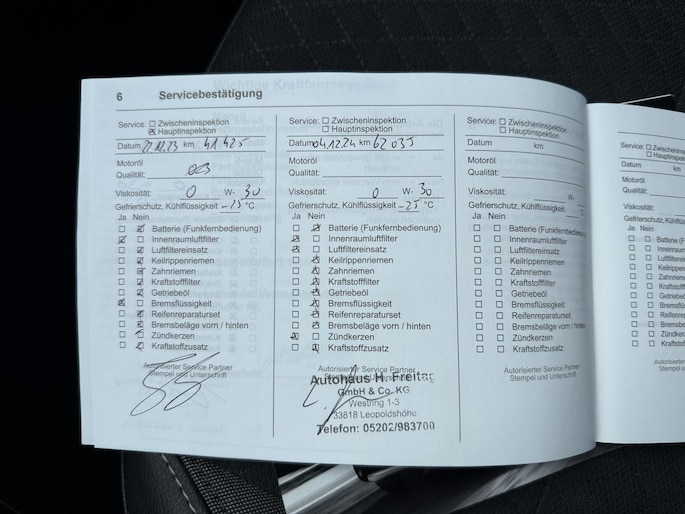 6 Servicebestätigung
Service: ☐ Zwischeninspektion
☒ Hauptinspektion
Datum 21.12.23 km 41 425
Motoröl
Qualität:
Viskosität: 0 W- 30
Gefrierschutz, Kühlflüssigkeit -25 °C
Ja Nein
☐ ☒ Batterie (Funkfernbedienung)
☒ ☐ Innenraumluftfilter
☐ ☒ Luftfiltereinsatz
☐ ☒ Keilrippenriemen
☐ ☒ Zahnriemen
☐ ☒ Kraftstofffilter
☐ ☒ Getriebeöl
☒ ☐ Bremsflüssigkeit
☐ ☒ Reifenreparaturset
☐ ☒ Bremsbeläge vorn / hinten
☐ ☒ Zündkerzen
☐ ☒ Kraftstoffzusatz
Autorisierter Service Partner
Stempel und Unterschrift
Service: ☐ Zwischeninspektion
☐ Hauptinspektion
Datum 04.12.24 km 62 035
Motoröl
Qualität:
Viskosität: 0 W- 30
Gefrierschutz, Kühlflüssigkeit -25 °C
Ja Nein
☐ ☒ Batterie (Funkfernbedienung)
☒ ☐ Innenraumluftfilter
☒ ☐ Luftfiltereinsatz
☐ ☒ Keilrippenriemen
☐ ☒ Zahnriemen
☐ ☒ Kraftstofffilter
☐ ☒ Getriebeöl
☐ ☒ Bremsflüssigkeit
☐ ☒ Reifenreparaturset
☐ ☒ Bremsbeläge vorn / hinten
☒ ☐ Zündkerzen
☐ ☒ Kraftstoffzusatz
Autorisierter Service Partner
Stempel und Unterschrift
Autohaus H. Freitag
GmbH & Co. KG
Westring 1-3
33818 Leopoldshöhe
Telefon: 05202/983700
Service: ☐ Zwischeninspektion
☐ Hauptinspektion
Datum km
Motoröl
Qualität:
Viskosität: W-
Gefrierschutz, Kühlflüssigkeit °C
Ja Nein
☐ ☐ Batterie (Funkfernbedienung)
☐ ☐ Innenraumluftfilter
☐ ☐ Luftfiltereinsatz
☐ ☐ Keilrippenriemen
☐ ☐ Zahnriemen
☐ ☐ Kraftstofffilter
☐ ☐ Getriebeöl
☐ ☐ Bremsflüssigkeit
☐ ☐ Reifenreparaturset
☐ ☐ Bremsbeläge vorn / hinten
☐ ☐ Zündkerzen
☐ ☐ Kraftstoffzusatz
Autorisierter Service Partner
Stempel und Unterschrift
Service: ☐
☐
Datum km
Motoröl
Qualität:
Viskosität:
Gefrierschutz,
Ja Nein
☐ ☐ Batterie
☐ ☐
☐ ☐
☐ ☐
☐ ☐
☐ ☐
☐ ☐
☐ ☐
☐ ☐
☐ ☐
☐ ☐
☐ ☐